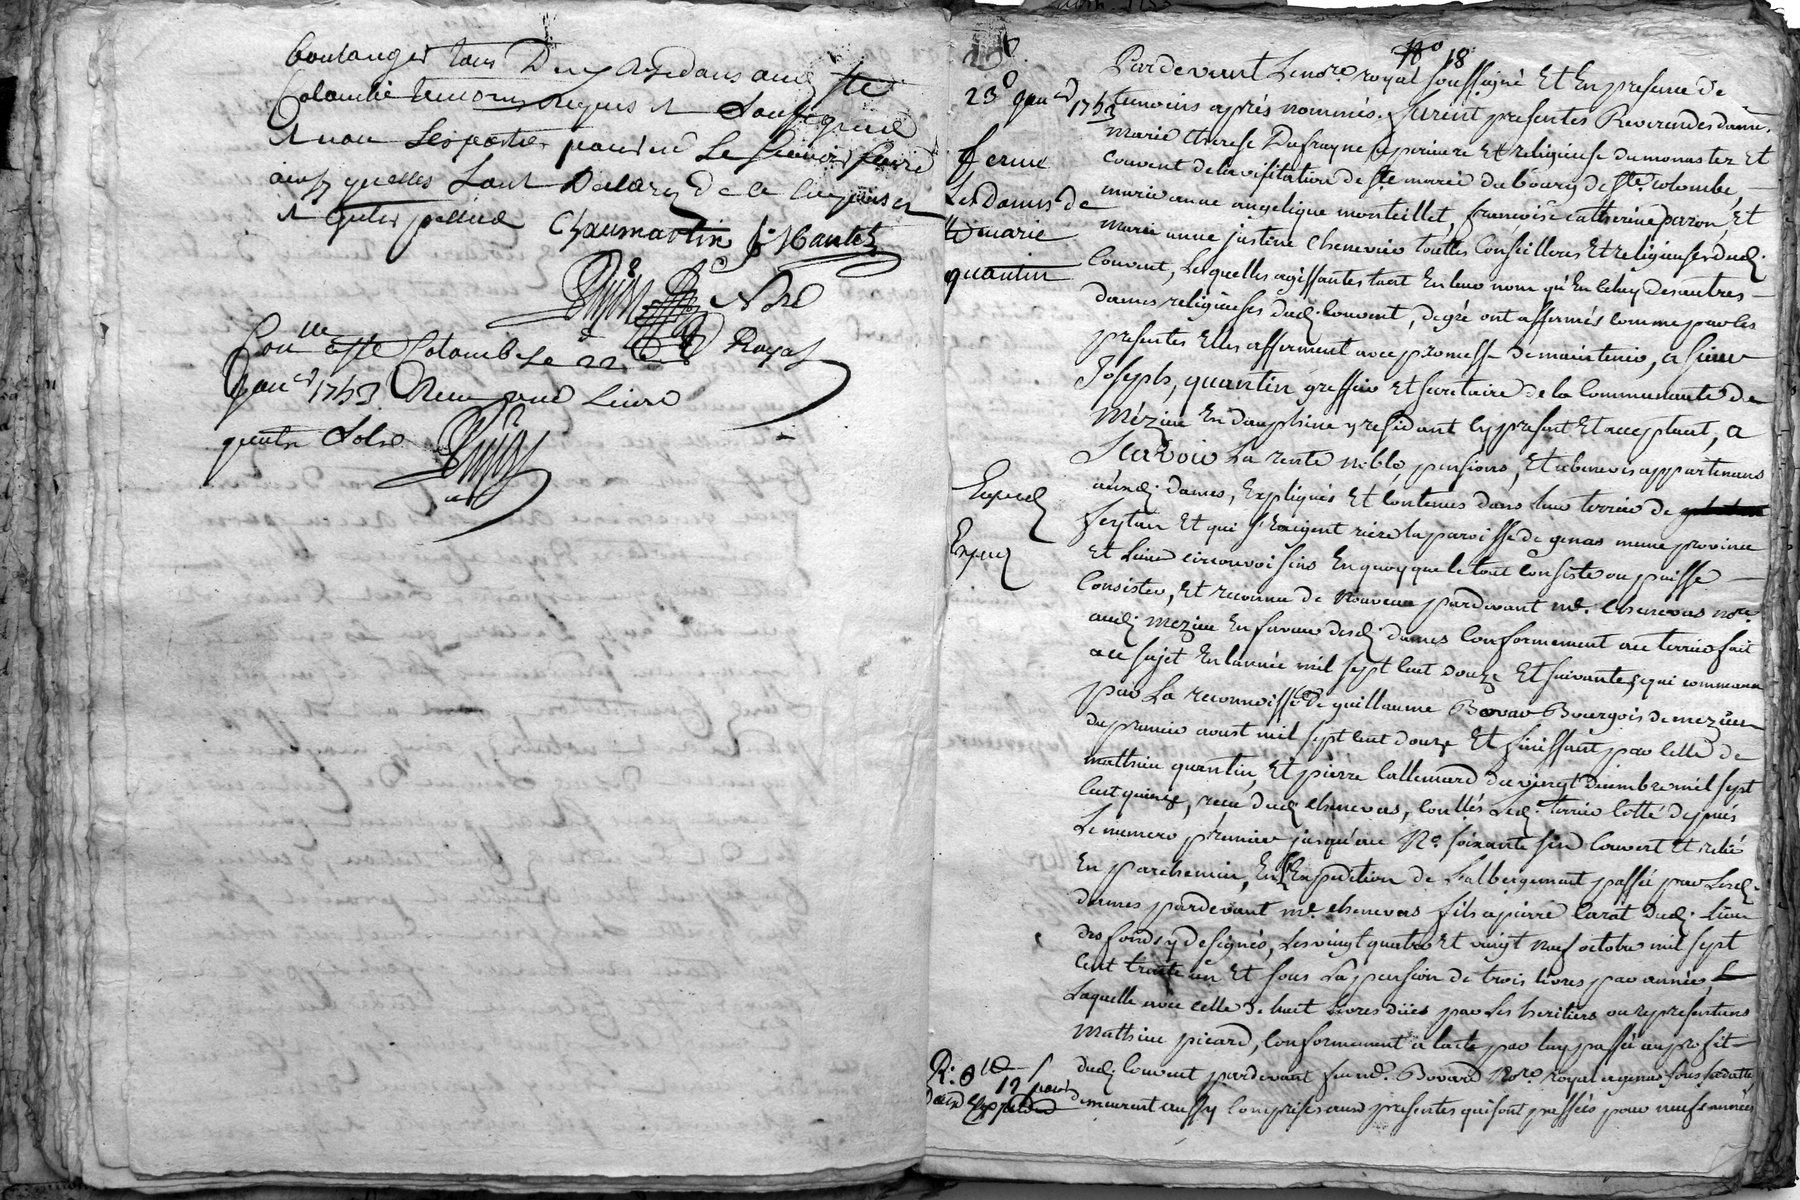 boulanger tous Deux residans audt Ste
Colombe temoins requis et Soussignés
et non les parties pour ne le scavoir faire
ainsy quelles sont Declaré de ce enquises
et interpellées Chaumartin f: Nantet
Nore
Royal
Conlle a Ste Colombe le 22
Janer 1753 Reçu
quatre Sols
No 18
23e Janer 1753
ferme
Les dames de
Ste marie
quantin
Pardevant Le nore royal soussigné Et En presence de
temoins aprés nommés, furent presentes Reverendes dames
marie therese Dufrayne superieure Et religieuse du monaster Et
Couvent de la visitation de Ste marie du bourg de Ste Colombe,
marie anne angelique monteillet, françoise Catherine paron, Et
marie anne justine Chenevier touttes Conseilleres Et religieuses dudt
Couvent, Lesquelles agissantes tant En leur nom qu'En Celuy des autres
dames religieuses dudt Couvent, de gré ont affermés Comme par les
presentes Elles afferment avec promesse de maintenir, a sieur
Joseph, quantin greffier Et secretaire de la Communauté de
Mézieu En dauphine y residant Cy present Et acceptant, a
Scavoir La rente noble, pensions, Et abenevis appartenans
auxdt dames, Expliqués Et Contenus dans leur terrier de
feytain Et qui s'Exigent riere la paroisse de genas meme province
Et Lieux circonvoisins En quoy que le tout Consiste ou puisse
Consister, Et reconnu de Nouveau pardevant me. Chenevas nore
audt mezieu En faveur desdt dames Conformement au terrier fait
au sujet En l'année mil sept Cent douze Et suivantes qui commence
par La reconnoisse De guillaume Bovar Bourgois de mezieu
du premier aoust mil sept Cent douze Et finissant par Celle de
mathieu quantin, Et pierre Callemard du vingt decembre mil sept
Cent quinze, receu dudt Chenevas, Ledt terrier Cotté depuis
Le numero premier jusqu'au No. soixante six Couvert Et relié
En parchemin, Expedition de L'albergement passée par Lesdt
dames pardevant me. Chenevas fils a pierre Carat dudt Lieu
des fonds y designés, Les vingt quatre Et vingt neuf octobre mil sept
Cent trente un Et sous La pension de trois livres par années,
Laquelle avec Celle de huit Livres dües par Les heritiers ou representans
Mathieu picard, Conformement a l'acte par luy passé au profit
dudt Couvent pardevant feu me. Bovard nore. royal a genas sous sa datte
demeurent aussy Comprises aux presentes qui sont passées pour neuf années
12
Expedié